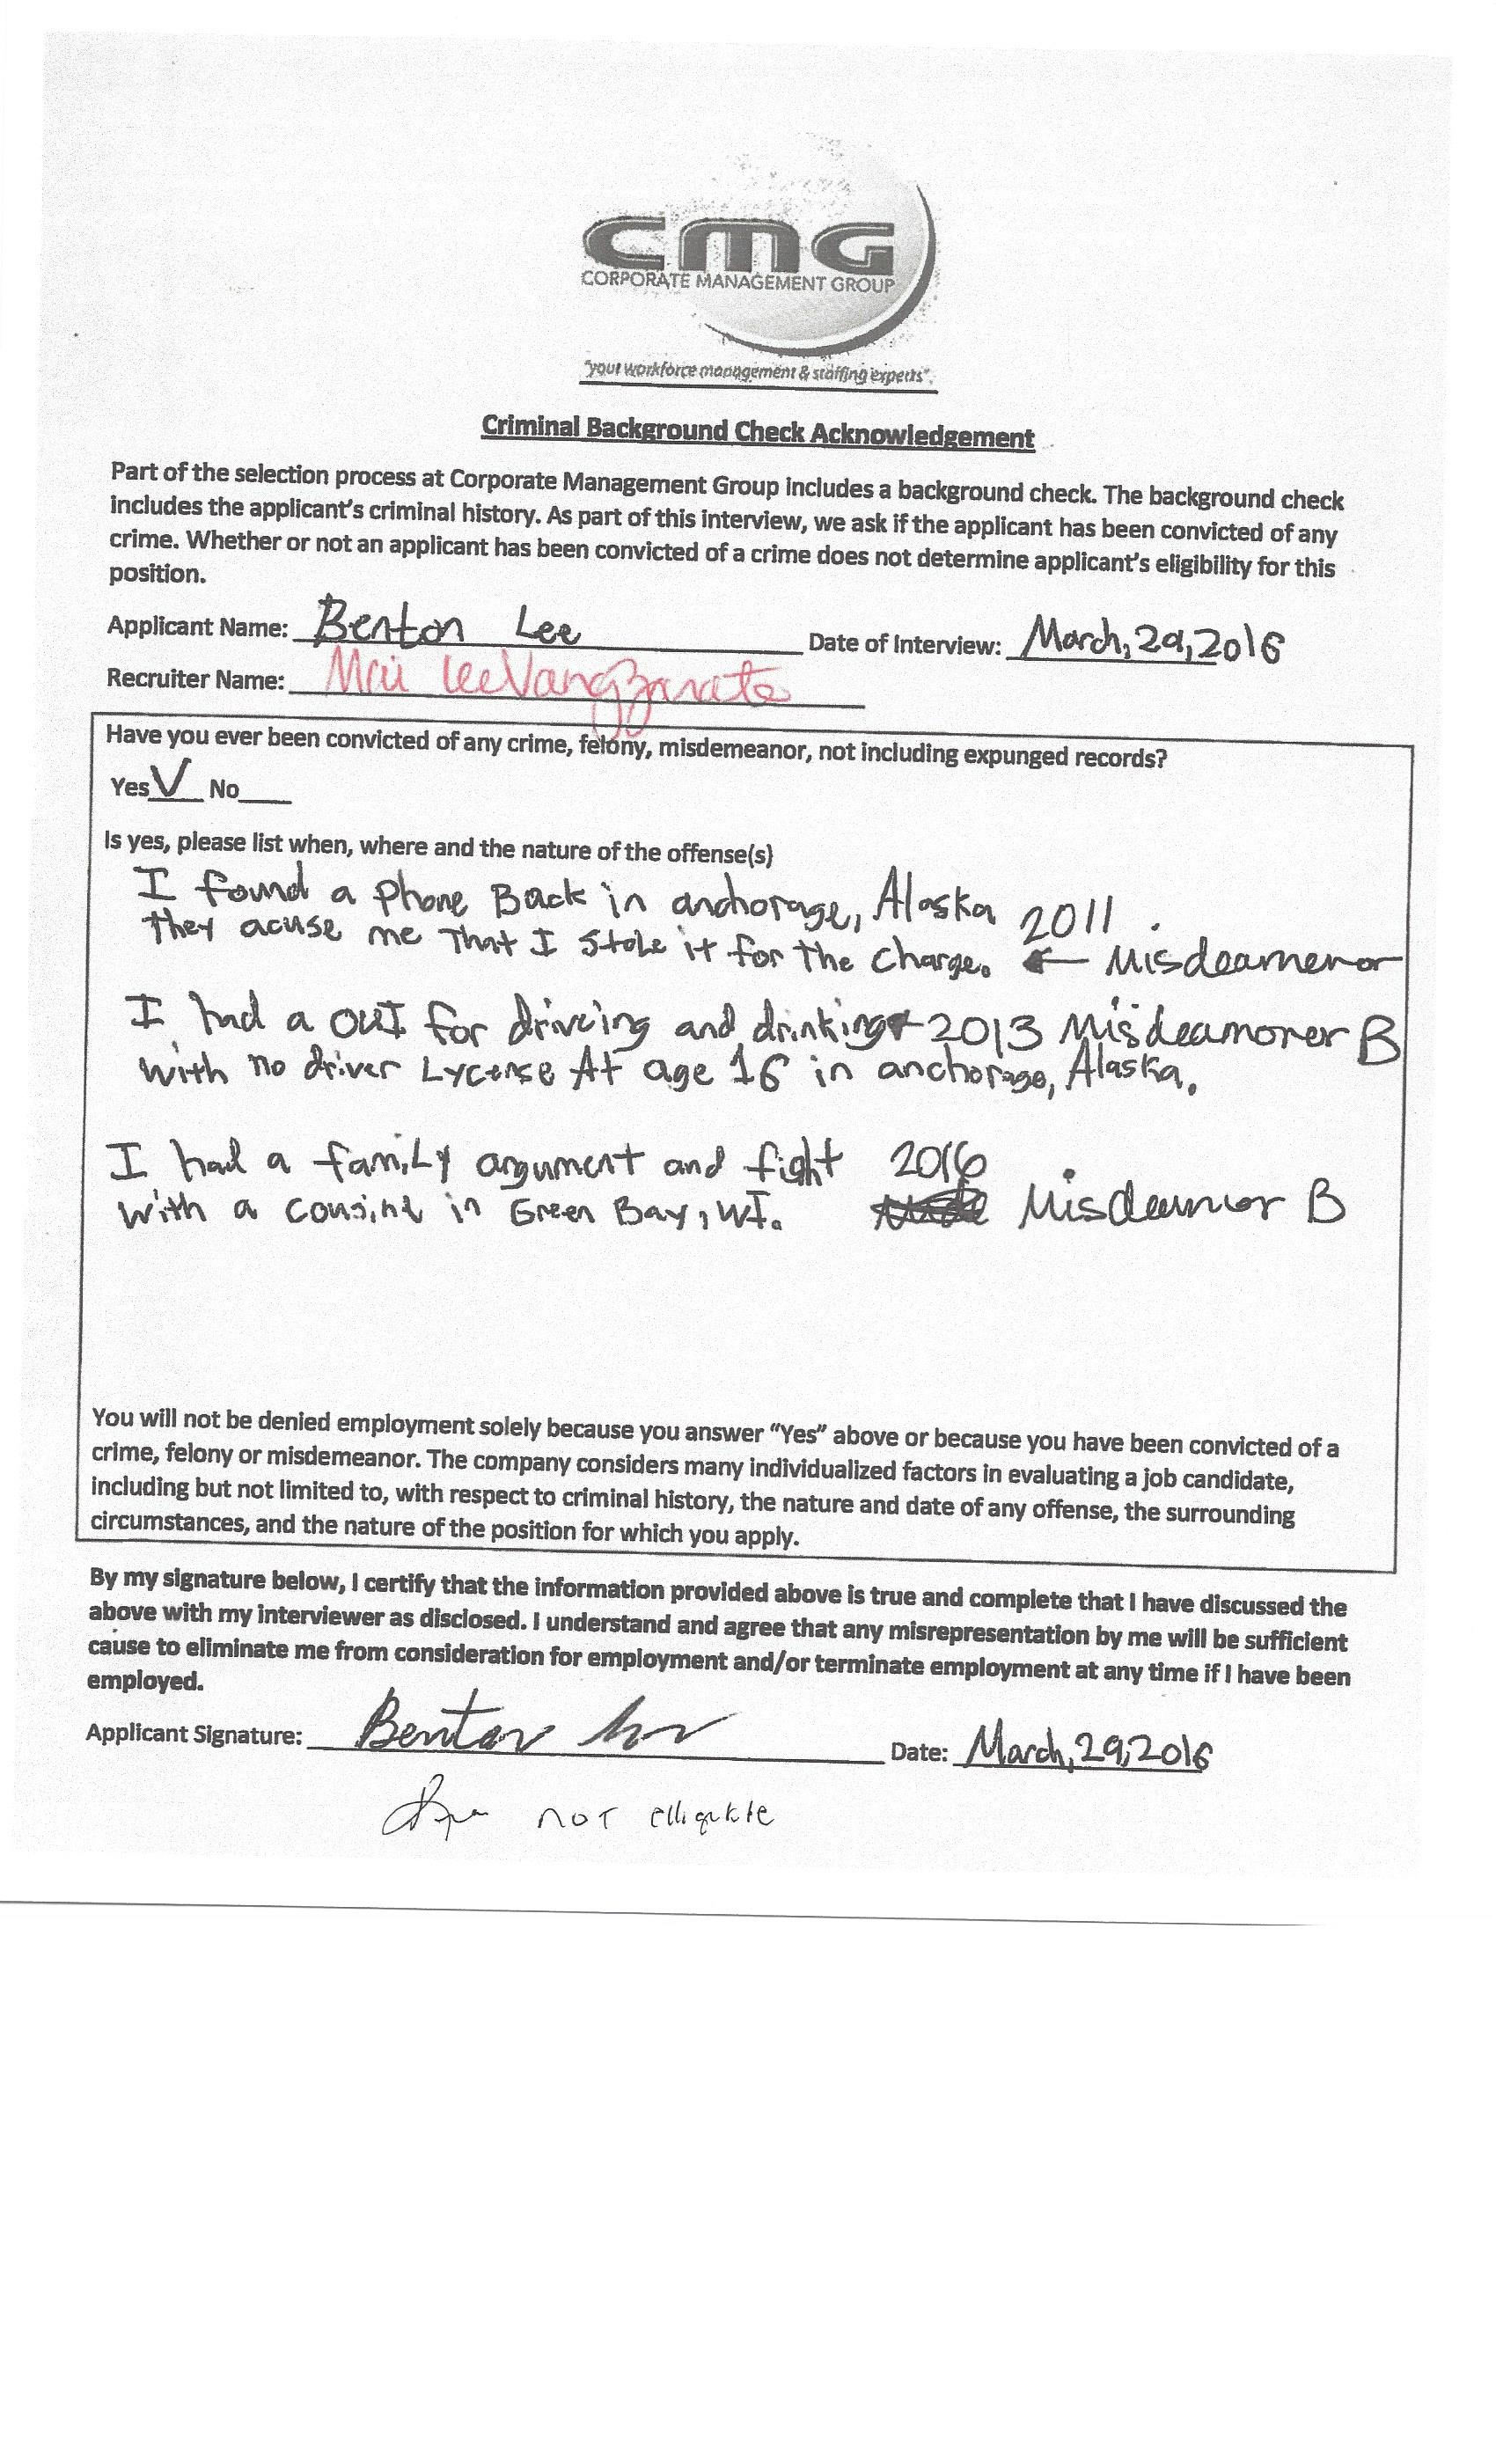 CMG
CORPORATE MANAGEMENT GROUP
"your workforce management & staffing experts".
Criminal Background Check Acknowledgement
Part of the selection process at Corporate Management Group includes a background check. The background check
includes the applicant's criminal history. As part of this interview, we ask if the applicant has been convicted of any
crime. Whether or not an applicant has been convicted of a crime does not determine applicant's eligibility for this
position.
Applicant Name: Benton Lee Date of Interview: March, 29, 2016
Recruiter Name: Mai LeeVangZarate
Have you ever been convicted of any crime, felony, misdemeanor, not including expunged records?
Yes V No
Is yes, please list when, where and the nature of the offense(s)
I found a phone Back in anchorage, Alaska 2011.
they acuse me That I stole it for the charge. ← Misdeamenor
I had a OUI for drivcing and drinking 2013 Misdeamorer B
with no driver Lycense At age 16 in anchorage, Alaska.
I had a family argument and fight 2016
with a cousind in Green Bay, WI. Misdeamior B
You will not be denied employment solely because you answer "Yes" above or because you have been convicted of a
crime, felony or misdemeanor. The company considers many individualized factors in evaluating a job candidate,
including but not limited to, with respect to criminal history, the nature and date of any offense, the surrounding
circumstances, and the nature of the position for which you apply.
By my signature below, I certify that the information provided above is true and complete that I have discussed the
above with my interviewer as disclosed. I understand and agree that any misrepresentation by me will be sufficient
cause to eliminate me from consideration for employment and/or terminate employment at any time if I have been
employed.
Applicant Signature: Benton Date: March, 29, 2016
not